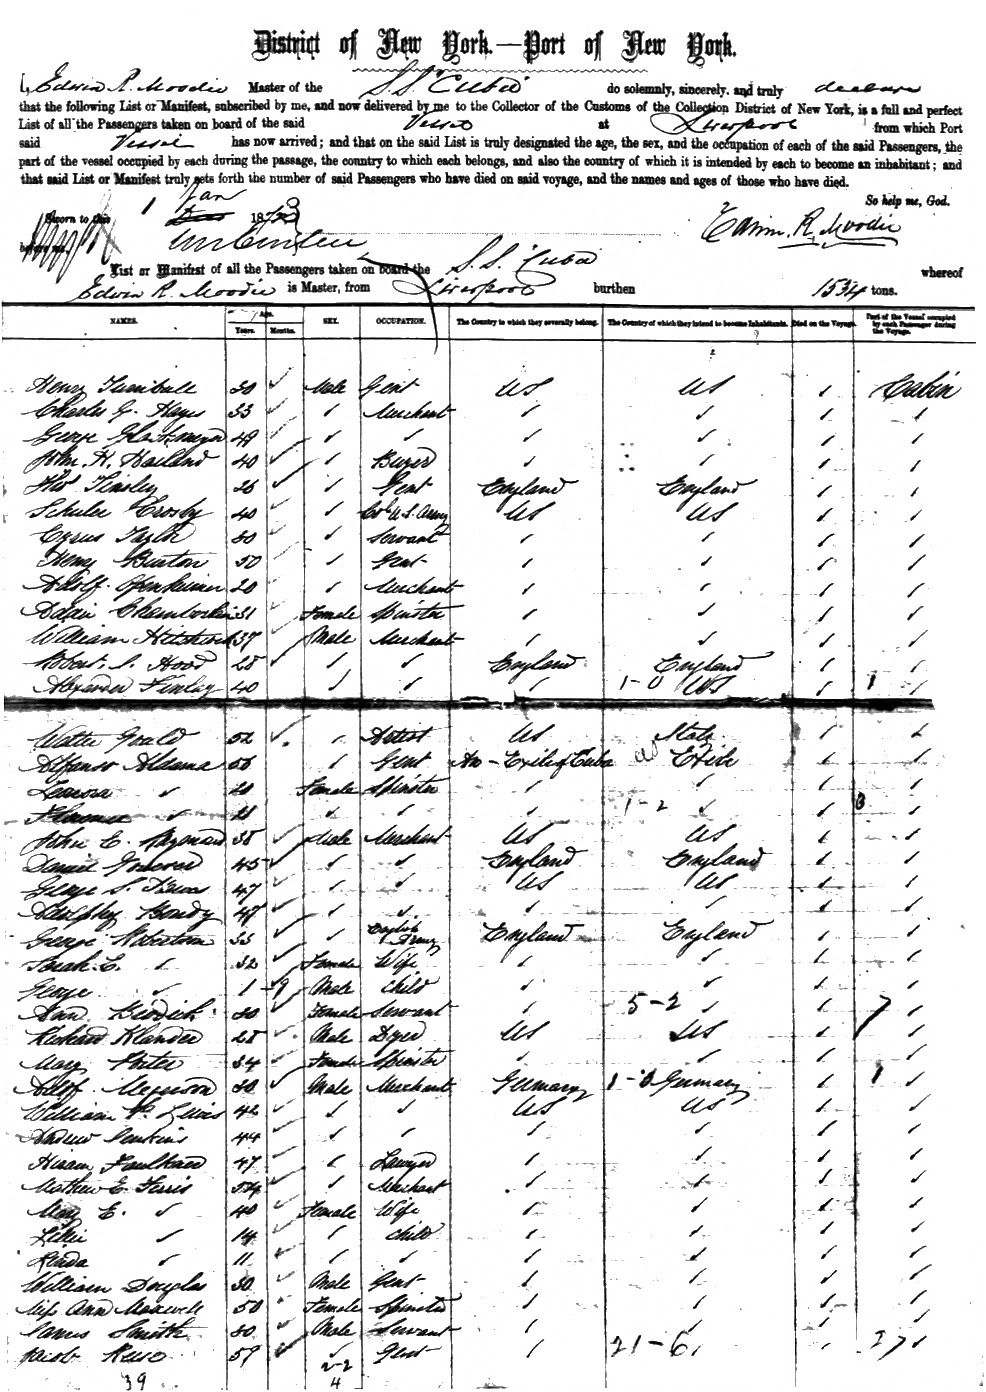 District of New York.—Port of New York.
I, Edwin R. Moodie Master of the S.S. "Cuba" do solemnly, sincerely, and truly declare
that the following List or Manifest, subscribed by me, and now delivered by me to the Collector of the Customs of the Collection District of New York, is a full and perfect
List of all the Passengers taken on board of the said Vessel at Liverpool from which Port
said Vessel has now arrived; and that on the said List is truly designated the age, the sex, and the occupation of each of the said Passengers, the
part of the vessel occupied by each during the passage, the country to which each belongs, and also the country of which it is intended by each to become an inhabitant; and
that said List or Manifest truly sets forth the number of said Passengers who have died on said voyage, and the names and ages of those who have died.
So help me, God.
Sworn to this 1 Jan 1873
before me Edwin R. Moodie
List or Manifest of all the Passengers taken on board the S.S. Cuba whereof
Edwin R. Moodie is Master, from Liverpool burthen 1534 tons.
NAMES. Age. Years. Months. SEX. OCCUPATION. The Country to which they severally belong. The Country of which they intend to become Inhabitants. Died on the Voyage. Part of the Vessel occupied by each Passenger during the Voyage.
Henry Turnbull 30 ✓ Male Gent US US Cabin
Charles G. Hayes 33 Merchant
George 49
John H. 40 Buyer
Thos Tinsley 26 Gent England England
Schuler Crosby 40 Col U.S. Army US US
Cyrus Taylor 30 Servant
Henry Burton 50 Gent
Adolf Openheimer 20 Merchant
Chamberlin 31 Female Spinster
William Hitchcock 37 Male Merchant
Robert S. Hood 28 England England
Alexander Finlay 40 1-0 US 1
Walter Gould 52 Artist US State
Alfonso Aldama 56 Gent An Exile of Cuba Exile
Leonora 20 Female Spinster
21 1-2 3
John E. 38 Male Merchant US US
Daniel 45 England England
George S. 47 US US
47
George 33 English Army England England
Sarah E. 32 Female Wife
George 1 9 Male Child
Ann 30 Female Servant 5-2 7
Richard Klander 28 Male Dyer US US
Mary Porter 34 Female Spinster
Adolf 30 Male Merchant Germany 1-0 Germany 1
William Lewis 42 US US
Andrew Jenkins 44
Hiram Faulkner 47 Lawyer
Mathew E. Ferris 54 Merchant
Mary E. 40 Female Wife
Lillie 14 Child
Linda 11
William Douglas 30 Male Gent
Miss Ann Maxwell 50 Female Spinster
James Smith 30 Male Servant
Jacob 59 Gent 21-6 27
39 2-2
4